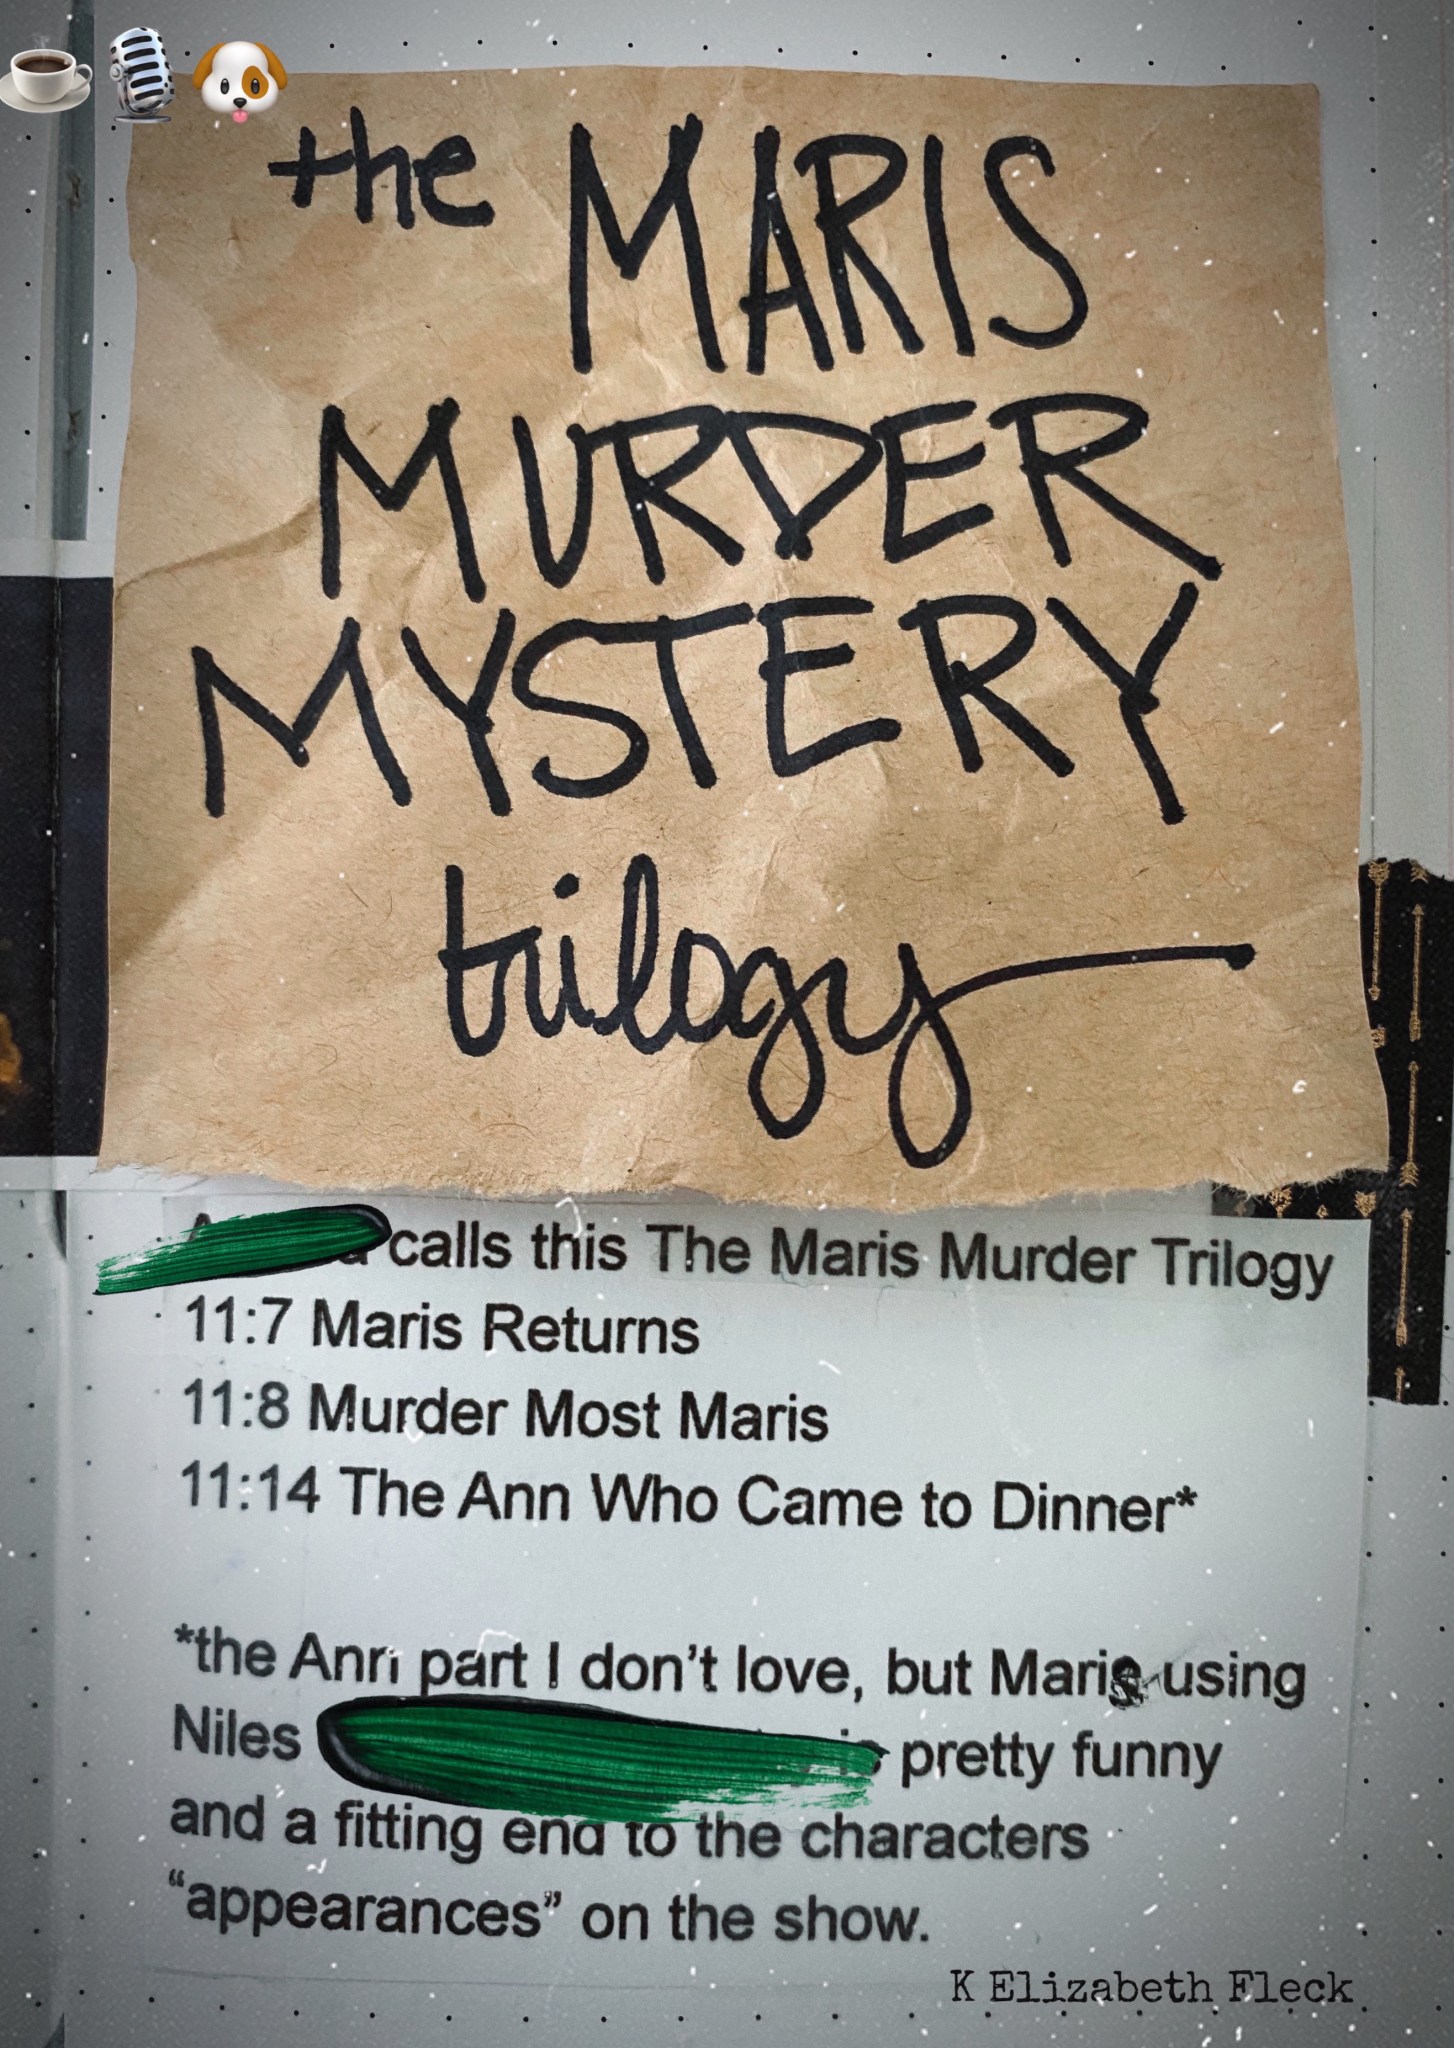 the MARIS
MURDER
MYSTERY
trilogy
calls this The Maris Murder Trilogy
11:7 Maris Returns
11:8 Murder Most Maris
11:14 The Ann Who Came to Dinner*
*the Ann part I don't love, but Maris using
Niles is pretty funny
and a fitting end to the characters
“appearances” on the show.
K Elizabeth Fleck